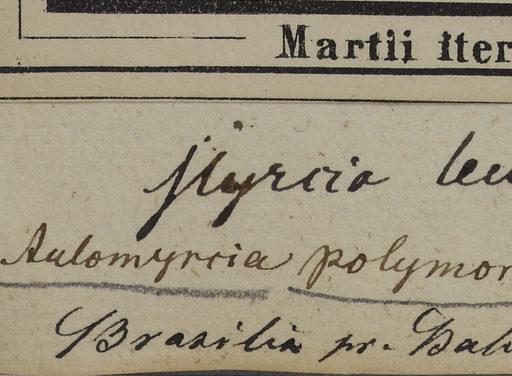 Martii iter
Myrcia leu
Aulomyrcia polymor
Brasilia pr. Bah